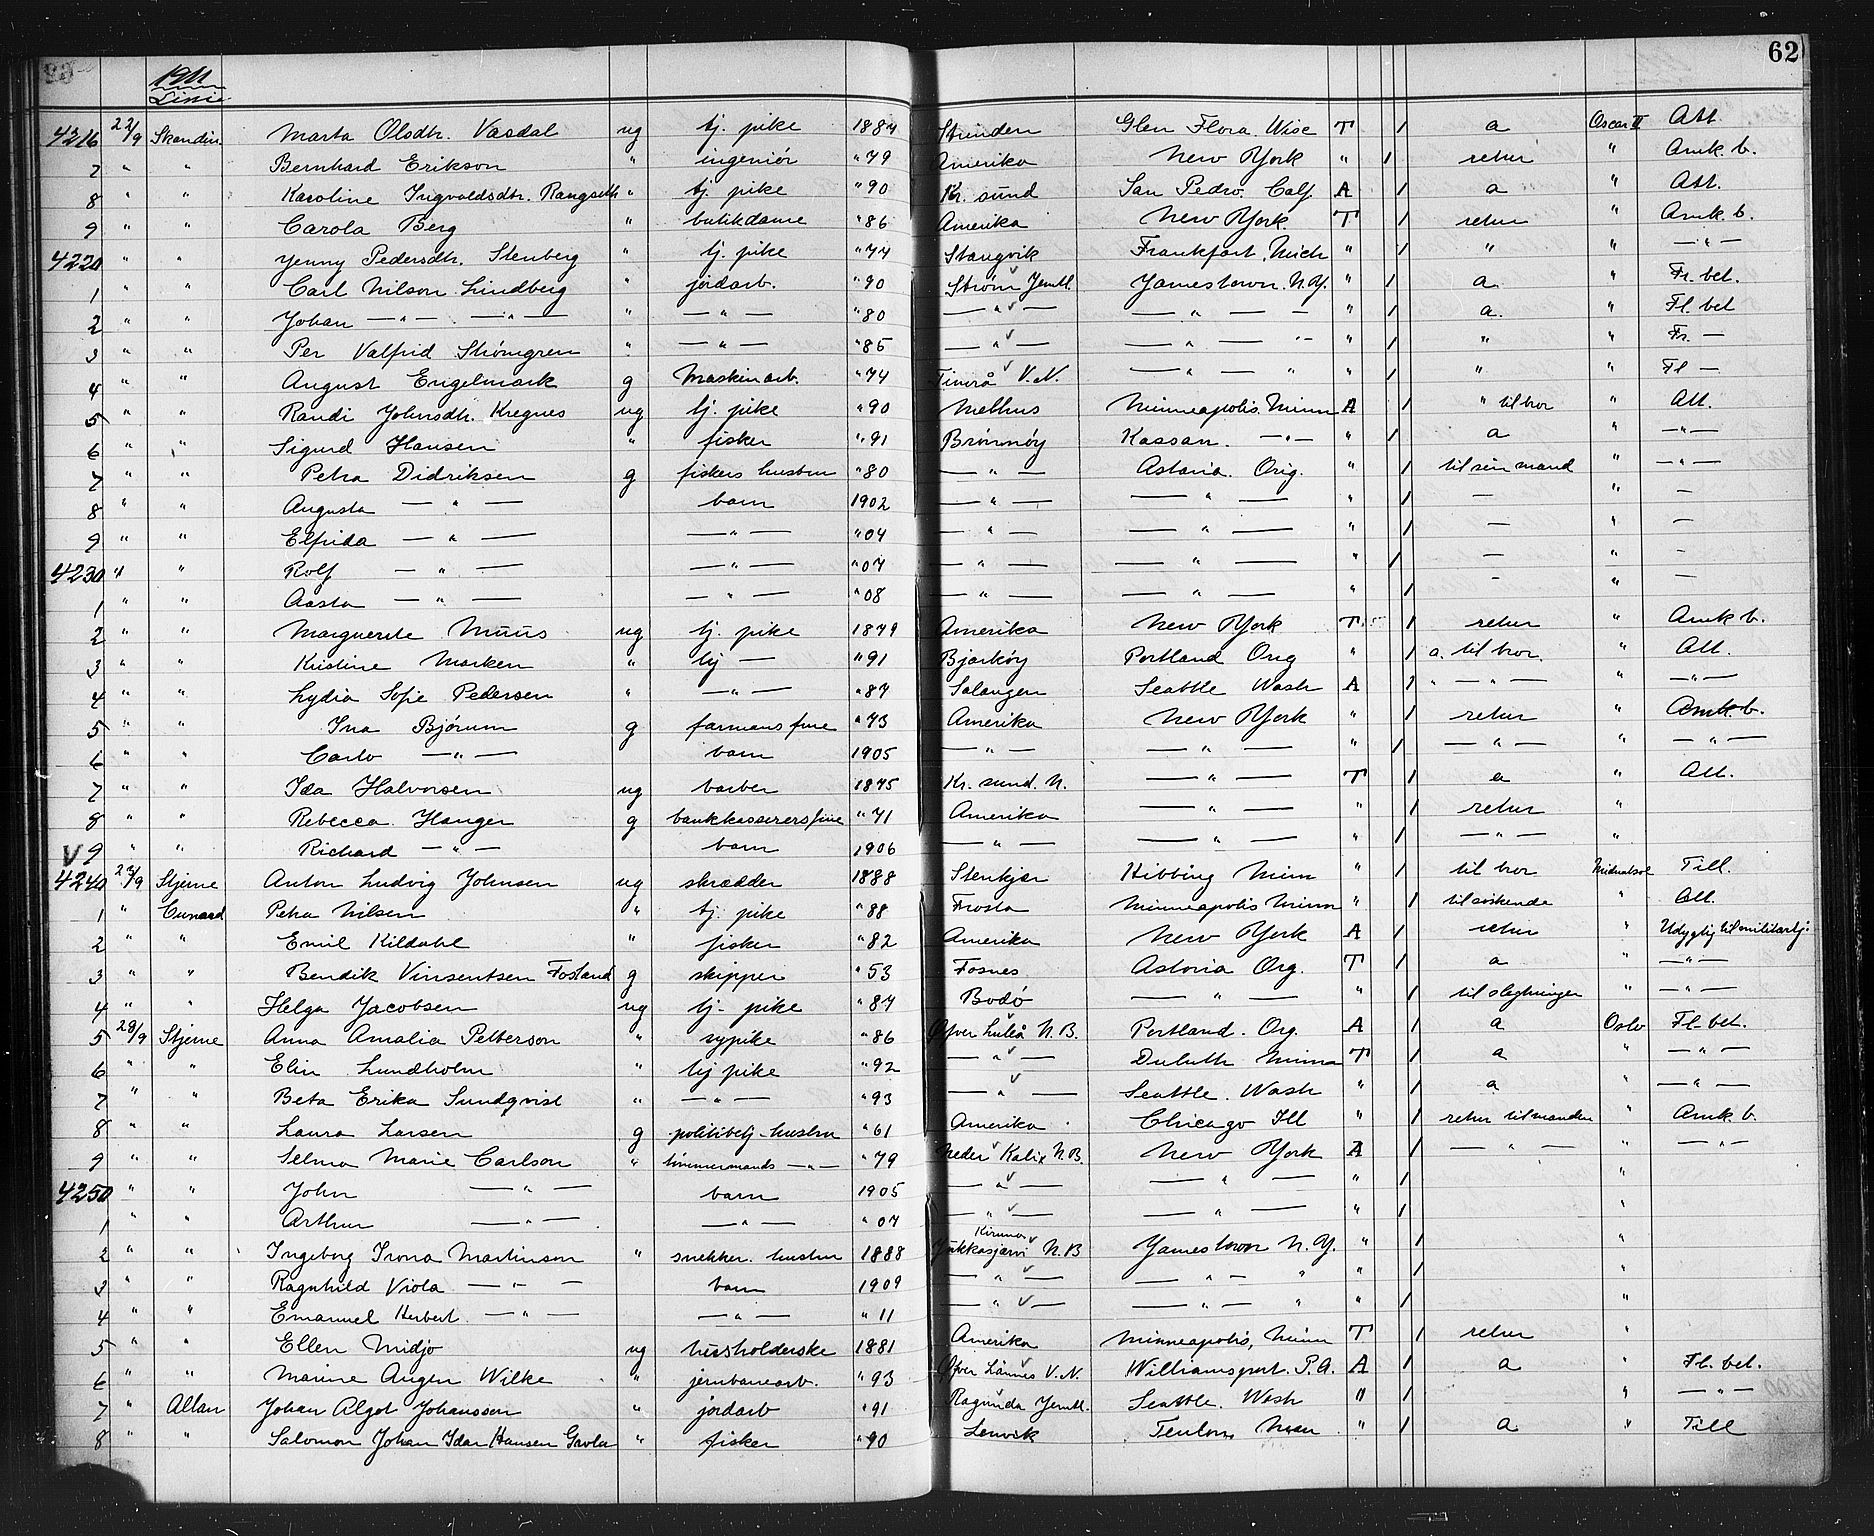 62
1911
Linie
4216 22/9 Skandin. Marta Olsdtr. Vasdal ug tj. pike 1884 Strinden Glen Flora. Wisc T 1 a Oscar II Att.
7 " " Bernhard Erikson " ingeniör " 79 Amerika New York " 1 retur " Amk. b.
8 " " Karoline Ingvaldsdtr. Rangseth " tj. pike " 90 Kr. sund San Pedro. Calf A 1 a " Att.
9 " " Carola Berg " butikdame " 86 Amerika New York. T 1 retur " Amk. b.
4220 " " Jenny Pedersdtr. Stenberg " tj. pike " 74 Stangvik Frankfort. Mich " 1 " " — " —
1 " " Carl Nilson Lindberg " jordarb. " 90 Ström Jemtl. Jamestown. N.Y. " 1 a " Fr. bet.
2 " " Johan — " — — " — " — " — " 80 — " — — " — — " 1 a. " Fl. bet
3 " " Per Valfrid Strömgren " — " — " 85 — " — — " — " — " 1 " " Fr. —
4 " " August Engelmark g Maskinarb. " 74 Timrå V.N. — " — " " 1 " " Fl —
5 " " Randi Johnsdtr. Kregnes ug tj. pike " 90 Melhus Minneapolis. Minn A 1 " til bror " Att.
6 " " Sigurd Hansen " fisker " 91 Brönnöy Kassan. — " — " 1 a " — " —
7 " " Petra Didriksen g fiskers hustru " 80 — " — Astoria. Orig. " 1 til sin mand " — " —
8 " " Augusta — " — barn 1902 — " — — " — " 1 — " —
9 " " Elfrida — " — — " — " 04 — " — — " — " 1 — " —
4230 " " Rolf — " — — " — " 07 — " — — " — " 1 — " —
1 " " Aasta — " — — " — " 08 — " — — " — " 1 — " —
2 " " Marguerite Muus ug tj. pike 1879 Amerika New York T. 1 retur " Amk b.
3 " " Kristine Marken " tj — " 91 Bjarköy Portland Org " 1 a. til bror. " Att.
4 " " Lydia Sofie Pedersen " — " — " 87 Salangen Seattle Wash A 1 " — " — " — " —
5 " " Ina Bjørum g farmans frue " 73 Amerika New York " 1 retur " Amk. b.
6 " " Carlo — " — barn 1905 — " — — " — " 1 — " — " — " —
7 " " Ida Halvorsen ug barber 1875 Kr. sund. N. — " — T 1 a " Att.
8 " " Rebecca Hanger g bankkasserersfrue " 71 Amerika — " — " 1 retur "
V 9 " " Richard — " — barn 1906 — " — — " — " 1 — " — "
4240 22/9 Stjerne Anton Ludvig Johnsen ug skrædder 1888 Stenkjær Hibbing Minn " 1 til bror Midnatsol Till.
1 " Cunard Petra Nilsen " tj. pike " 88 Frosta Minneapolis Minn " 1 til söskende " Att.
2 " " Emil Kildahl " fisker " 82 Amerika New York A 1 retur " Udygtig til militærtj:
3 " " Bendik Vinsentsen Fosland g skipper " 53 Fosnes Astoria Org. T 1 a " — " —
4 " " Helga Jacobsen ug tj. pike " 87 Bodö — " — " 1 til slegtninger " — " —
5 28/9 Stjerne Anna Amalia Petterson " sypike " 86 Öfver Luleå N.B. Portland. Org. A 1 a Oslo Fl. bet.
6 " " Elin Lundholm " tj pike " 92 — " — Duluth Minna T 1 a " — " —
7 " " Beta Erika Sundqvist " — " — " 93 — " — Seattle. Wash " 1 a " — " —
8 " " Laura Larsen g politibetj-hustru " 61 Amerika Chicago Ill " 1 retur til manden " Amk. b.
9 " " Selma Marie Carlson " tömmermands — " — " 79 Neder Kalix N.B. New York A 1 — " — " — " —
4250 " " John — " — barn 1905 — " — — " — " 1 "
1 " " Arthur — " — — " — " 07 — " — — " — " 1 "
Kiruna
2 " " Ingeborg Irona Martinson " snekker. hustru 1888 Jukkasjärvi N.B Jamestown N.Y. " 1 "
3 " " Ragnhild Viola — " — barn 1909 — " — — " — " " 1 "
4 " " Emanuel Herbert — " — — " — " 11 — " — — " — " " 1 "
5 " " Ellen Midjo ug husholderske 1881 Amerika Minneapolis, Minn T 1 retur "
6 " " Marine Augen Wilke " jernbanearb. " 93 Öfver Lännes V.N. Williamsport. P.A. A 1 a " Fl. bet.
7 " Allan Johan Algot Johansson " jordarb " 91 Ragunda Jemtl. Seattle. Wash " 1 " — " —
8 " " Salomon Johan Idar Hansen Gavla " fisker " 90 Lenvik Teulon, Man " 1 a " Till